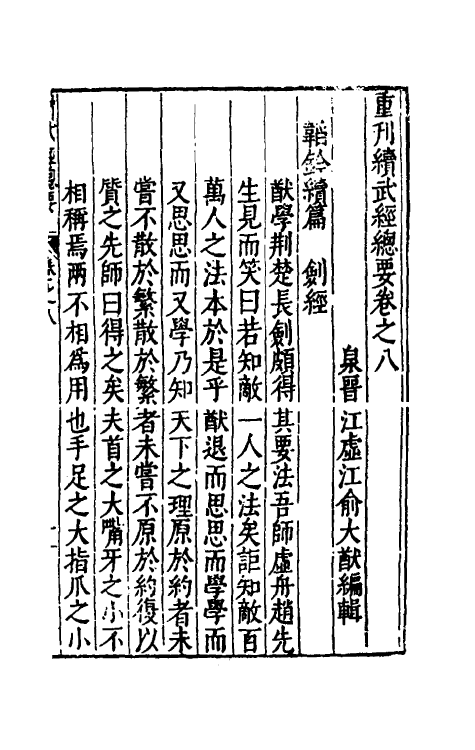 重刊續武經總要卷之八
泉晉江虛江俞大猷編輯
韜鈐續篇　劍經
猷學荆楚長劍頗得其要法吾師虛舟趙先
生見而笑曰若知敵一人之法矣詎知敵百
萬人之法本於是乎猷退而思思而學學而
又思思而又學乃知天下之理原於約者未
嘗不散於繁散於繁者未嘗不原於約復以
質之先師曰得之矣夫首之大嘴牙之小不
相稱焉兩不相爲用也手足之大指爪之小
武經總要　卷之八